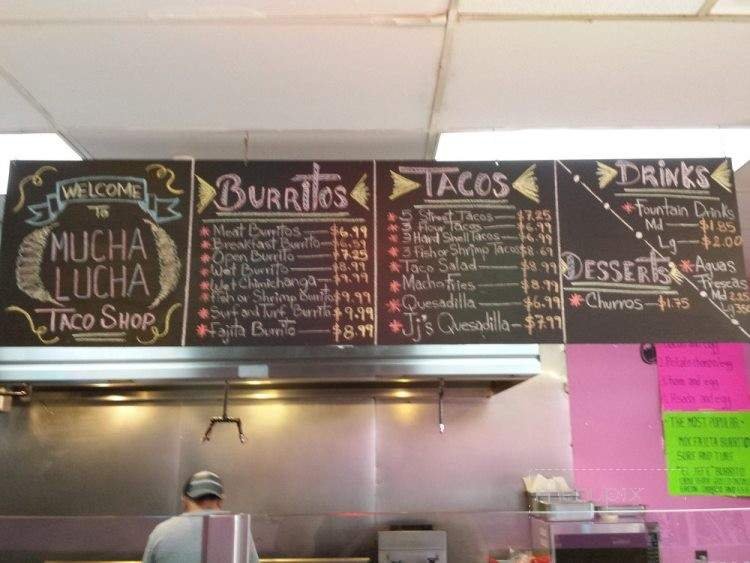 WELCOME
TO
MUCHA
LUCHA
TACO SHOP
BURRITOS
* Meat Burritos $6.99
* Breakfast Burrito $6.59
* Open Burrito $7.25
* Wet Burrito $8.99
* Wet Chimichanga $9.99
* Fish or Shrimp Burritos $9.99
* Surf and Turf Burrito $9.99
* Fajita Burrito $8.99
TACOS
* 5 Street Tacos $7.25
* 3 Flour Tacos $6.99
* 3 Hard Shell Tacos $6.99
* 3 Fish or Shrimp Tacos $8.69
* Taco Salad $8.99
* Macho Fries $8.99
* Quesadilla $6.99
* Jj's Quesadilla $7.99
DESSERTS
* Churros $1.75
DRINKS
* Fountain Drinks
Md $1.85
Lg $2.00
* Aguas
Frescas
Md 2.25
Lg
and egg
2. Potato chorizo/egg
3. Ham and egg
and egg
THE MOST POPULAR
SURF AND TURF
"EL JEFE" BURRITO